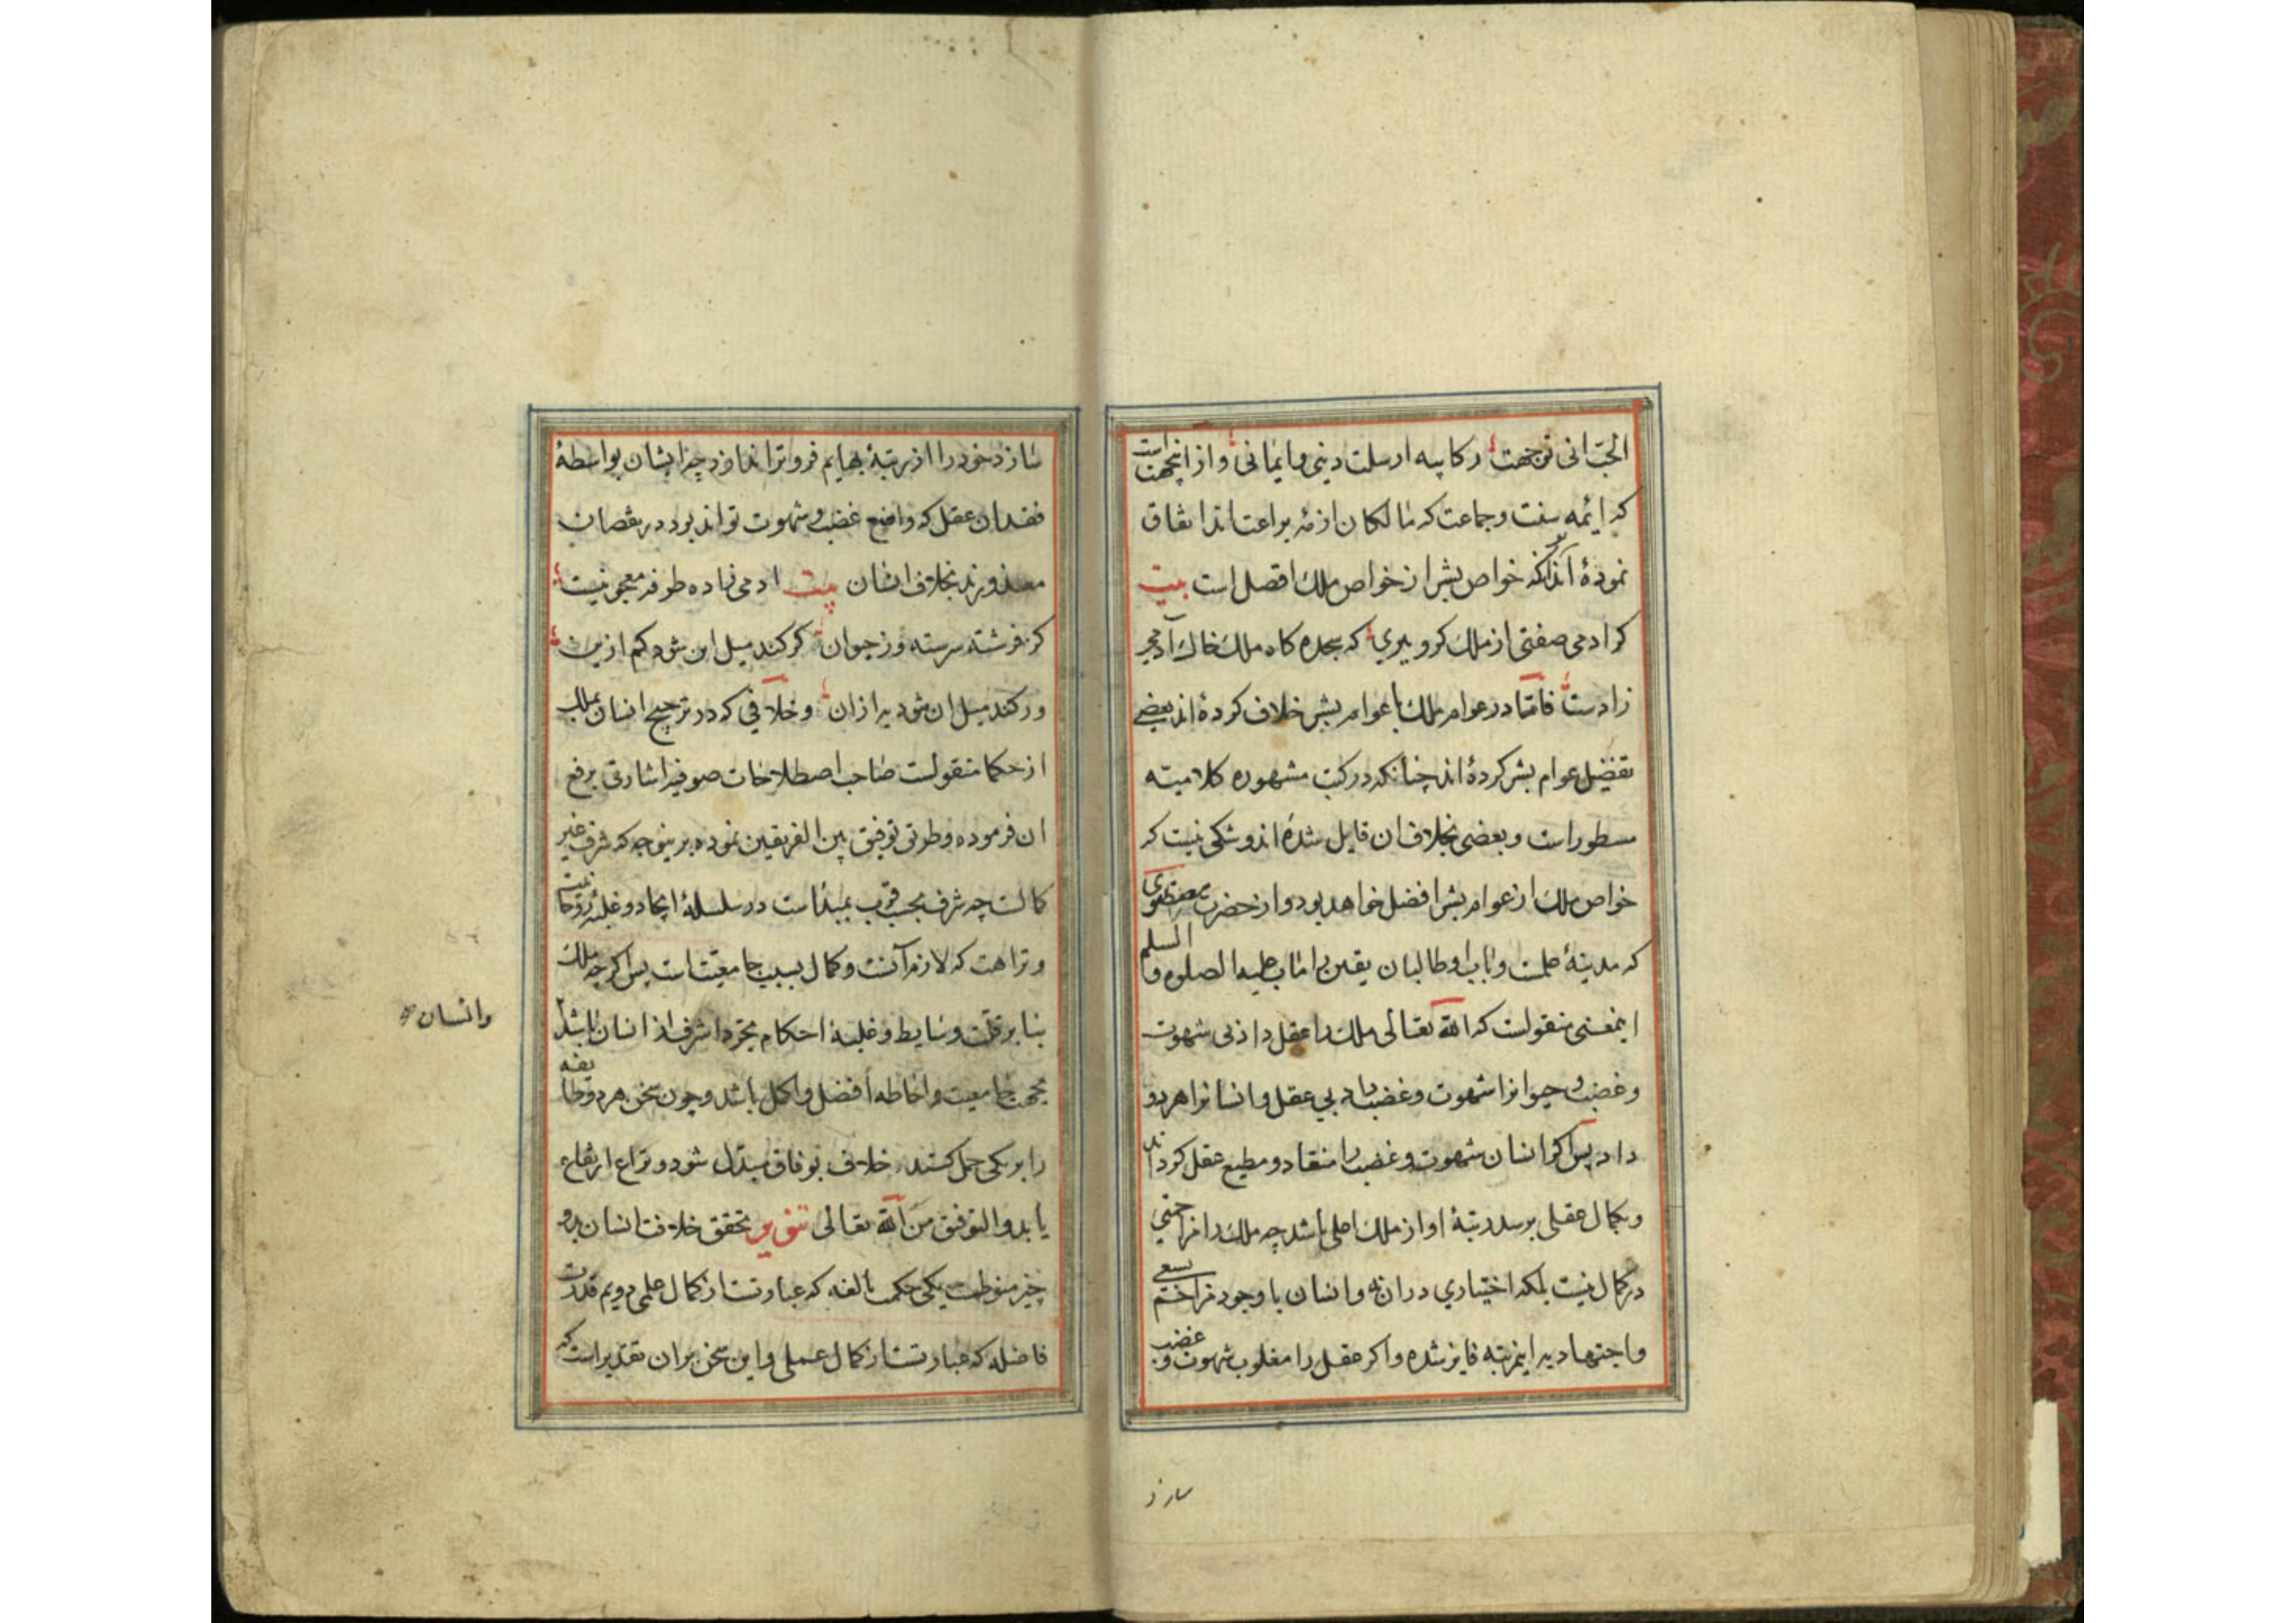 که ائمه سنت و جماعت که سالکان ازمه براعت‌اند اتفاق
نموده‌اند که خواص بشر از خواص ملک افضل است بیت
کرا دمی صفتی از ملک کرو ببری که سجده کاه ملک خاک آدمی
زادست فامّا در عوام ملک با عوام بشر خلاف کرده‌اند بعضی
تفضیل عوام بشر کرده‌اند چنانکه در کتب مشهوره کلامیّه
مسطور است و بعضی بخلاف ان قایل شده‌اند و شکی نیست که
خواص ملک از عوام بشر افضل خواهد بود و از حضرت
که مدینهٔ علمست و باب او طالبان یقین را ماب علیه الصلوه و السلم
اینمعنی منقولست که الله تعالی ملک را عقل داد بی شهوت
و غضب و حیوانرا شهوت و غضب داد بی عقل و انسانرا هردو
داد پس اکر انسان شهوت و غضب را منقاد و مطیع عقل کرداند
و بکمال عقلی برسد رتبهٔ او از ملک اعلی باشد چه ملک را مزاحمی
در کمال نیست بلکه اختیاری در ان نه و انسان با وجود مزاحم بسعی
و اجتهاد بدین مرتبه فایز شده و اکر عقل را مغلوب شهوت و غضب
سازد
سازد خود را از رتبهٔ بهایم فروتر اندازد چه ایشان بواسطهٔ
فقدان عقل که وازع غضب و شهوت تواند بود در نقصان
معذورند بخلاف انسان بیت ادمی زاده طرفه معجونیست
کز فرشته سرسته وز حیوان کر کند میل این شود کم ازین
ور کند میل ان شود به از ان و خلافی که در ترجیح انسان بملک
از حکما منقولست صاحب اصطلاحات صوفیه اشارتی برفع
ان فرموده و طریق توفیق بین الفریقین نموده برینوجه که شرف غیر
کمالست چه شرف بحسب قرب بمبدأست در سلسلهٔ ایجاد و غلبهٔ روحانیت
و نزاهت که لازم آنست و کمال بسبب جامعیّت است پس اکرچه ملک
بنا بر قلّت وسایط و غلبهٔ احکام تجرد اشرف از انسان باشد
وانسان
بجهت جامعیت و احاطه افضل و اکمل باشد و چون سخن هر دو طایفه
را برین یکی حمل کنند خلاف بوفاق مبدّل شود و نزاع ارتفاع
یابد و التوفیق من الله تعالی تنویر تحقق خلافت انسان بدو
چیز منوطست یکی حکمت بالغه که عبارتست از کمال علمی دویم قدرت
فاضله که عبارتست از کمال عملی و این سخن بران تقدیر است که